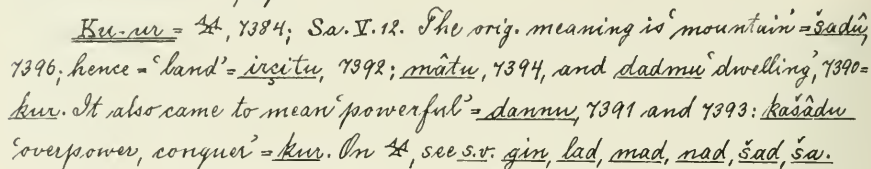 Ku-ur = 𒆳, 7384; Sa. V. 12. The orig. meaning is 'mountain' = šadû,
7396; hence = 'land' = irçitu, 7392; mâtu, 7394, and dadmu 'dwelling', 7390 =
kur. It also came to mean 'powerful' = dannu, 7391 and 7393: kašâdu
'overpower, conquer' = kur. On 𒆳, see s.v. gin, lad, mad, nad, šad, ša.